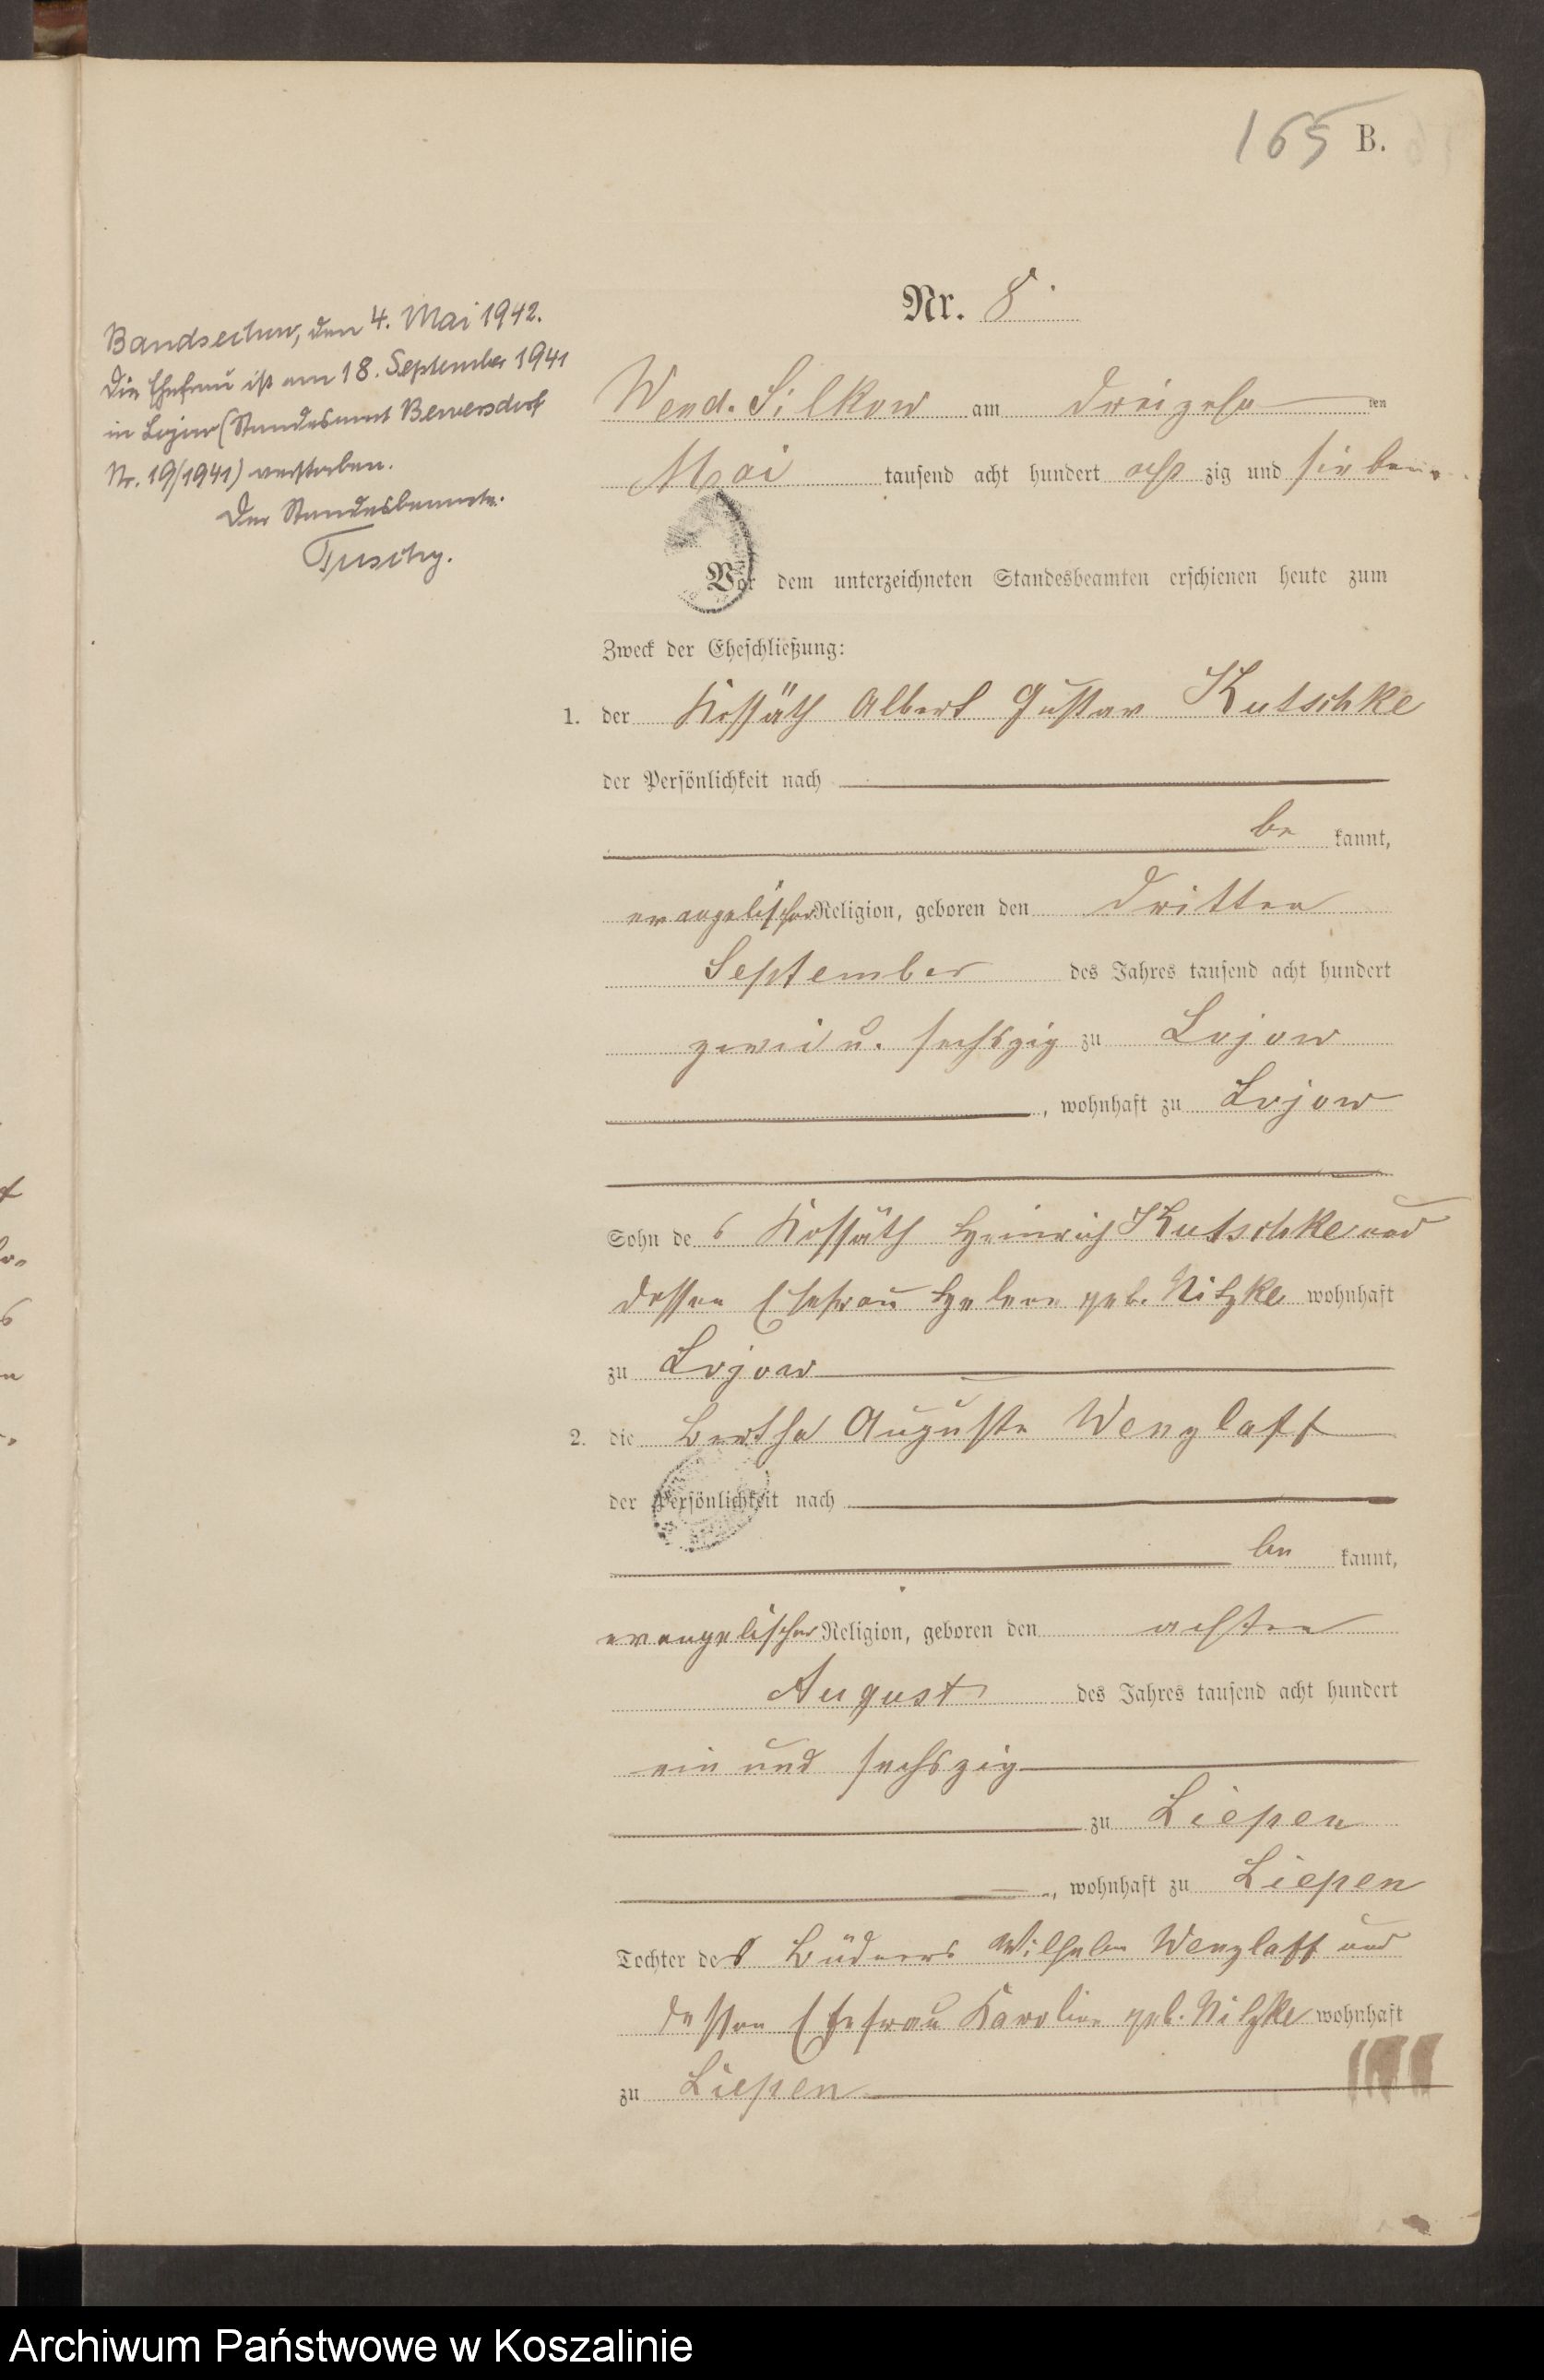 165 B.
Nr. 8.
Bandsechow, den 4. Mai 1942.
Die Ehefrau ist am 18. September 1941
in Lojow (Standesamt Bewersdorf
Nr. 19/1941) verstorben.
Der Standesbeamte.
Wend. Silkow am dreizehn ten
Mai tausend acht hundert acht zig und sieben
Vor dem unterzeichneten Standesbeamten erschienen heute zum
Zweck der Eheschließung:
1. der Kossäth Albert Gustav Kutschke
der Persönlichkeit nach
be kannt,
evangelischer Religion, geboren den dritten
September des Jahres tausend acht hundert
zwei u. sechszig zu Lojow
, wohnhaft zu Lojow
Sohn des Kossäth Heinrich Kutschke und
dessen Ehefrau Helene geb. Nitzke wohnhaft
zu Lojow
2. die Bertha Auguste Wenzlaff
der Persönlichkeit nach
be kannt,
evangelischer Religion, geboren den achten
August des Jahres tausend acht hundert
ein und sechszig
zu Liepen
, wohnhaft zu Liepen
Tochter des Büdners Wilhelm Wenzlaff und
dessen Ehefrau Karoline geb. Nitzke wohnhaft
zu Liepen
Archiwum Państwowe w Koszalinie